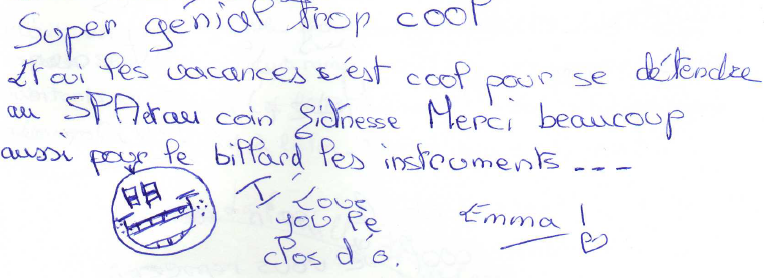 Super génial trop cool
Vrai les vacances c'est cool pour se détendre
au SPA et au coin fidnesse Merci beaucoup
aussi pour le billard les instruments ---
I Love
you le
clos d'o.
Emma !